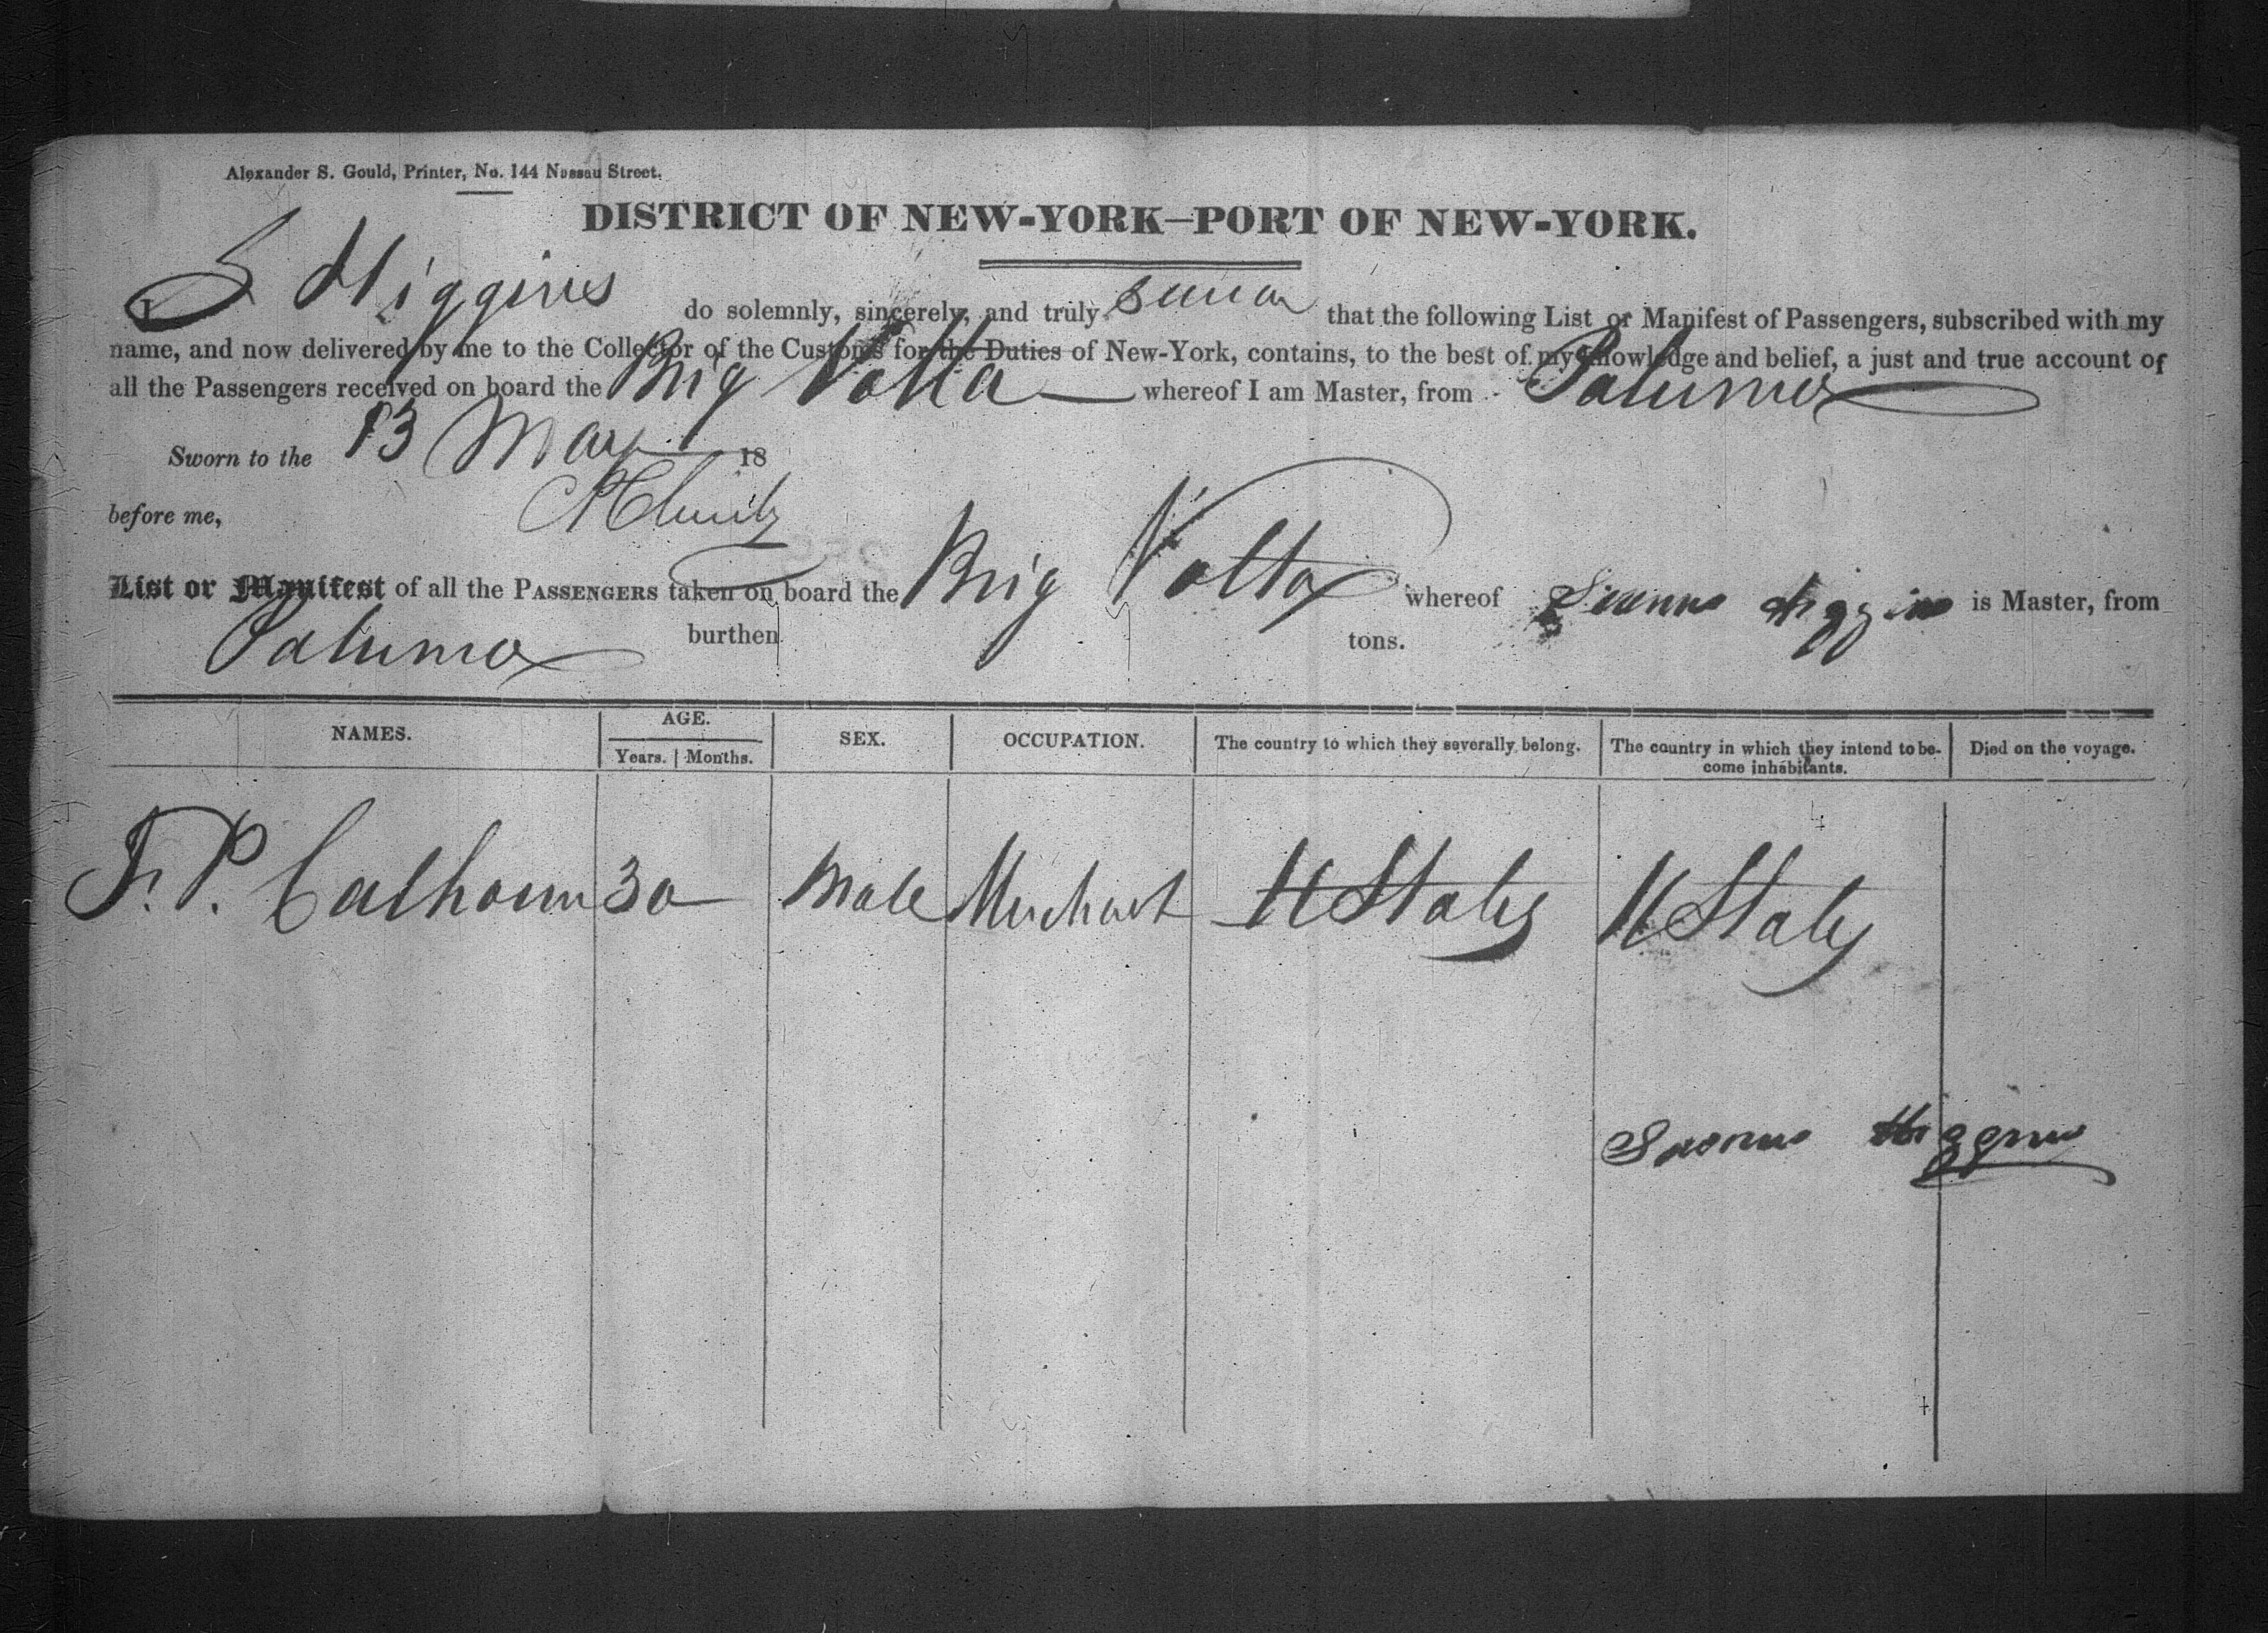 Alexander S. Gould, Printer, No. 144 Nassau Street.
DISTRICT OF NEW-YORK—PORT OF NEW-YORK.
I S Higgins do solemnly, sincerely, and truly that the following List or Manifest of Passengers, subscribed with my
name, and now delivered by me to the Collector of the Customs for the Duties of New-York, contains, to the best of my knowledge and belief, a just and true account of
all the Passengers received on board the Brig Volta whereof I am Master, from
Sworn to the 13 May 18
before me,
List or Manifest of all the PASSENGERS taken on board the Brig Volta whereof Higgins is Master, from
burthen tons.
NAMES. AGE. SEX. OCCUPATION. The country to which they severally belong. The country in which they intend to be-come inhabitants. Died on the voyage.
Years. Months.
F. P. Calhoun 30 Male Merchant U States U States
Higgins